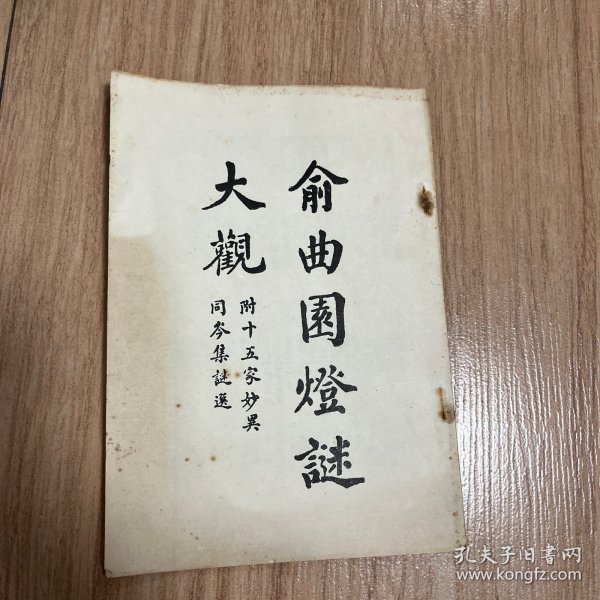 俞曲園燈謎
大觀
附十五家妙異
同岑集謎選
孔夫子旧书网
www.kongfz.com